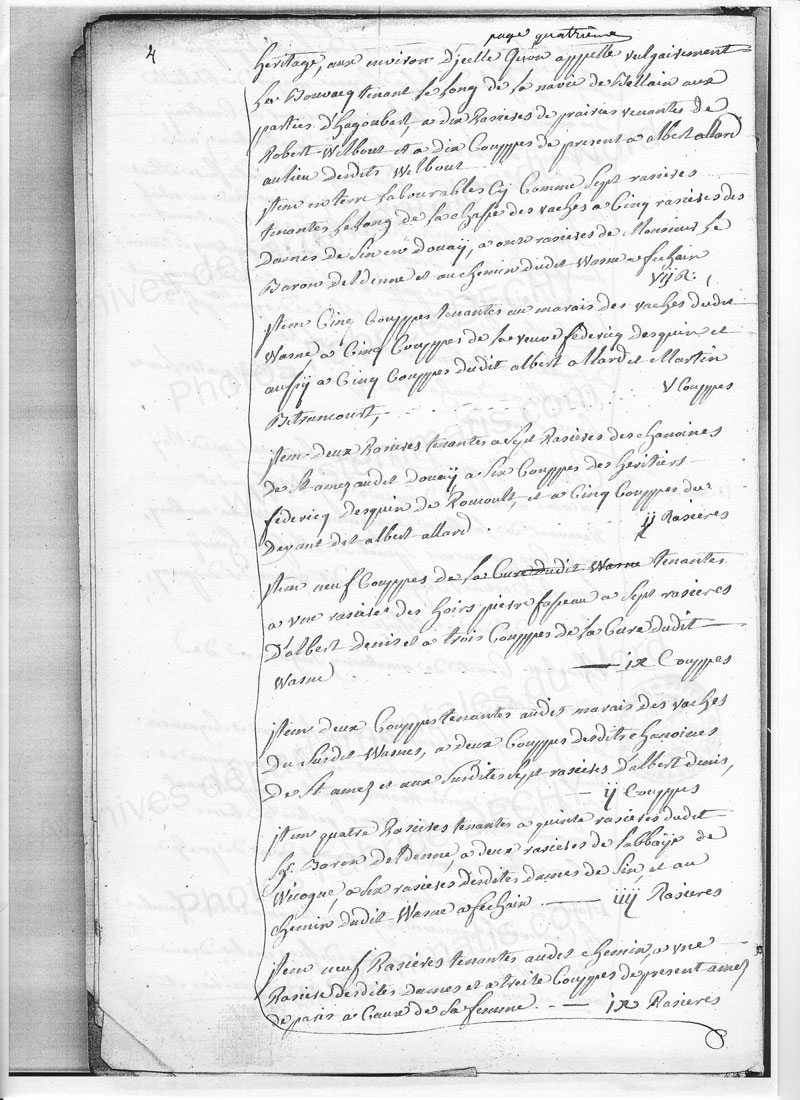 4
page quatrième
heritage, aux environ d'jcelle qu'on appelle vulgairement
le Bouvacq tenant le long de la navie de Bellain aux
parties d'hagoubert, a dix Rasieres de prairies venantes de
Robert Wilbout et a dix Couppes de present a albert allard
au lieu desdits Wilbout
jtem en terre labourables Cy Comme Sept rasieres
tenantes le long de la chasse des vaches a Cinq rasieres des
Dames de Sin en Doüaÿ, a onze rasieres de Monsieur le
Baron deldenne et au chemin dudit Wasne a fechain
vij R:
jtem Cinq Couppes tenantes au marais des vaches dudit
Wasne, a Cinq Couppes de la veuve federicq desquin et
aussÿ a Cinq Couppes dudit albert allard et Martin
Betrancourt,
V Couppes
jtem deux Rasieres tenantes a Sept Rasieres des chanoines
de St amez audit Doüaÿ a Six Couppes des heritiers
federicq desquin de Romcoult, et a Cinq Couppes du
devant dit albert allard
ij Rasieres
jtem neuf Couppes de la Cure dudit Wasne tenantes
a vne rasiere des hoirs pierre faseau a Sept rasieres
D'albert denis et a trois Couppes de la Cure dudit
Wasne
ix Couppes
jtem deux Couppes tenantes audit marais des vaches
Du Susdit Wasnes, a deux Couppes desdits chanoines
de St amez et aux Susdites Sept rasieres d'albert denis,
ij Couppes
jtem quatre Rasieres tenantes a quinze rasieres dudit
Sr. Baron deldenne, a deux rasieres de l'abbaÿe de
Wicogne, a Six rasieres desdites dames de Sin, et au
chemin dudit Wasne a fechain iiij Rasieres
jtem neuf Rasieres tenantes audit chemin, a vne
Rasiere desdites dames et a treize Couppes de present amez
de paris a Cause de Sa femme ix Rasieres